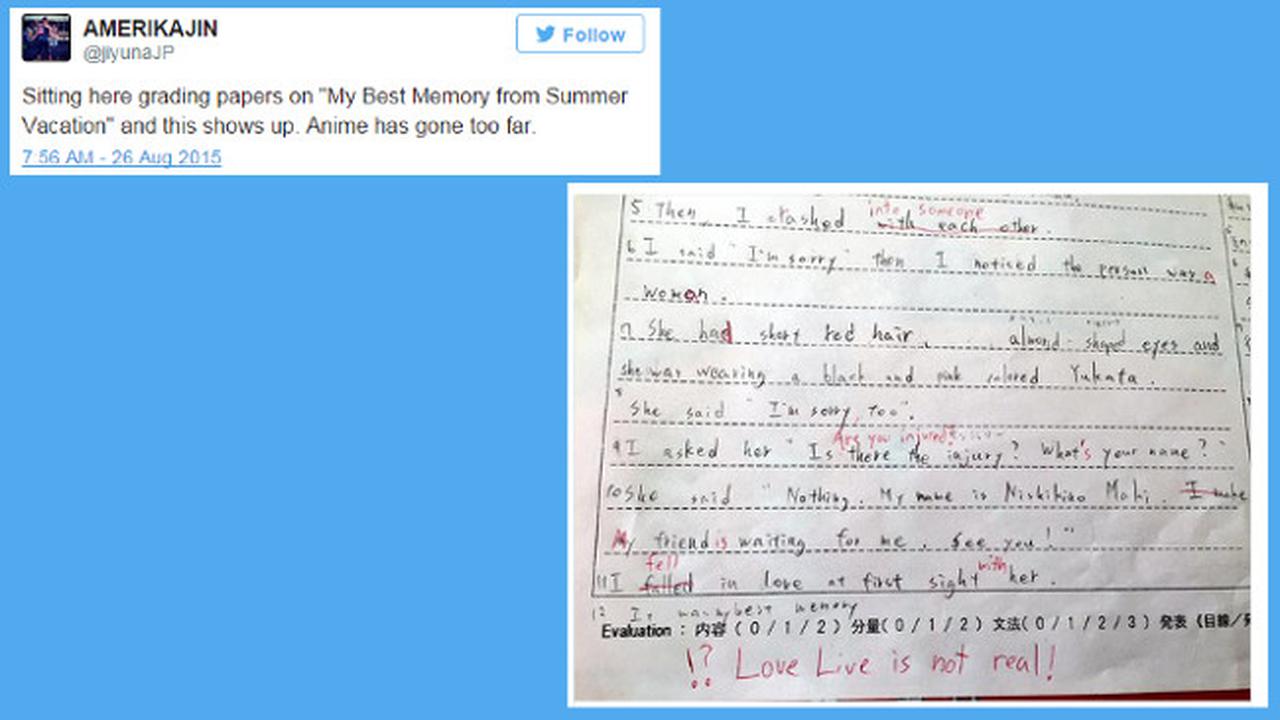 AMERIKAJIN
@jiyunaJP
Follow
Sitting here grading papers on "My Best Memory from Summer
Vacation" and this shows up. Anime has gone too far.
7:56 AM - 26 Aug 2015
into someone
5 Then, I crashed with each other.
6 I said "I'm sorry" then I noticed the person was a
woman.
7 She had short red hair, almond-shaped eyes and
she was wearing a black and pink colored Yukata.
8
She said "I'm sorry, too".
Are you injured?
9 I asked her "Is there the injury? What's your name?"
10 She said "Nothing. My name is Nishikino Maki. I make
My friend is waiting for me. See you!"
fell with
11 I falled in love at first sight her.
12 It was my best memory
Evaluation : 内容 ( 0 / 1 / 2 ) 分量( 0 / 1 / 2 ) 文法( 0 / 1 / 2 / 3 ) 発表 (目線/
!? Love Live is not real!